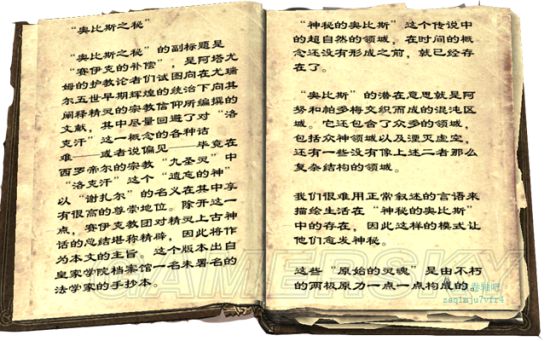 “奥比斯之秘”
“奥比斯之秘”的副标题是
“赛伊克的补偿”，是阿塔尤
姆的护教论者们试图向在尤瑞
尔五世早期辉煌的统治下向其
阐释精灵的宗教信仰所编撰的
文献，其中尽量回避了对“洛
克汗”这一概念的各种诘
难——或者说偏见——毕竟在
西罗帝尔的宗教“九圣灵”中
“洛克汗”这个“遗忘的神”
以“谢扎尔”的名义在其中享
有很高的尊崇地位。除开这一
点，赛伊克教团对精灵上古神
话的总结堪称精辟，因此将作
为本文的主旨。这个版本出自
皇家学院档案馆一名未署名的
法学家的手抄本。
“神秘的奥比斯”这个传说中
的超自然的领域，在时间的概
念还没有形成之前，就已经存
在了。
“奥比斯”的潜在意思就是阿
努和帕多梅交织而成的混沌区
域。它还包含了众多的领域，
包括众神领域以及湮灭虚空，
还有一些没有像上述二者那么
复杂结构的领域。
我们很难用正常叙述的言语来
描绘生活在“神秘的奥比斯”
中的存在，因此这样的模式让
他们愈发神秘。
这些“原始的灵魂”是由不朽
的两极原力一点一点构成的。
GAMERSKY
zaq1mju7vfr4